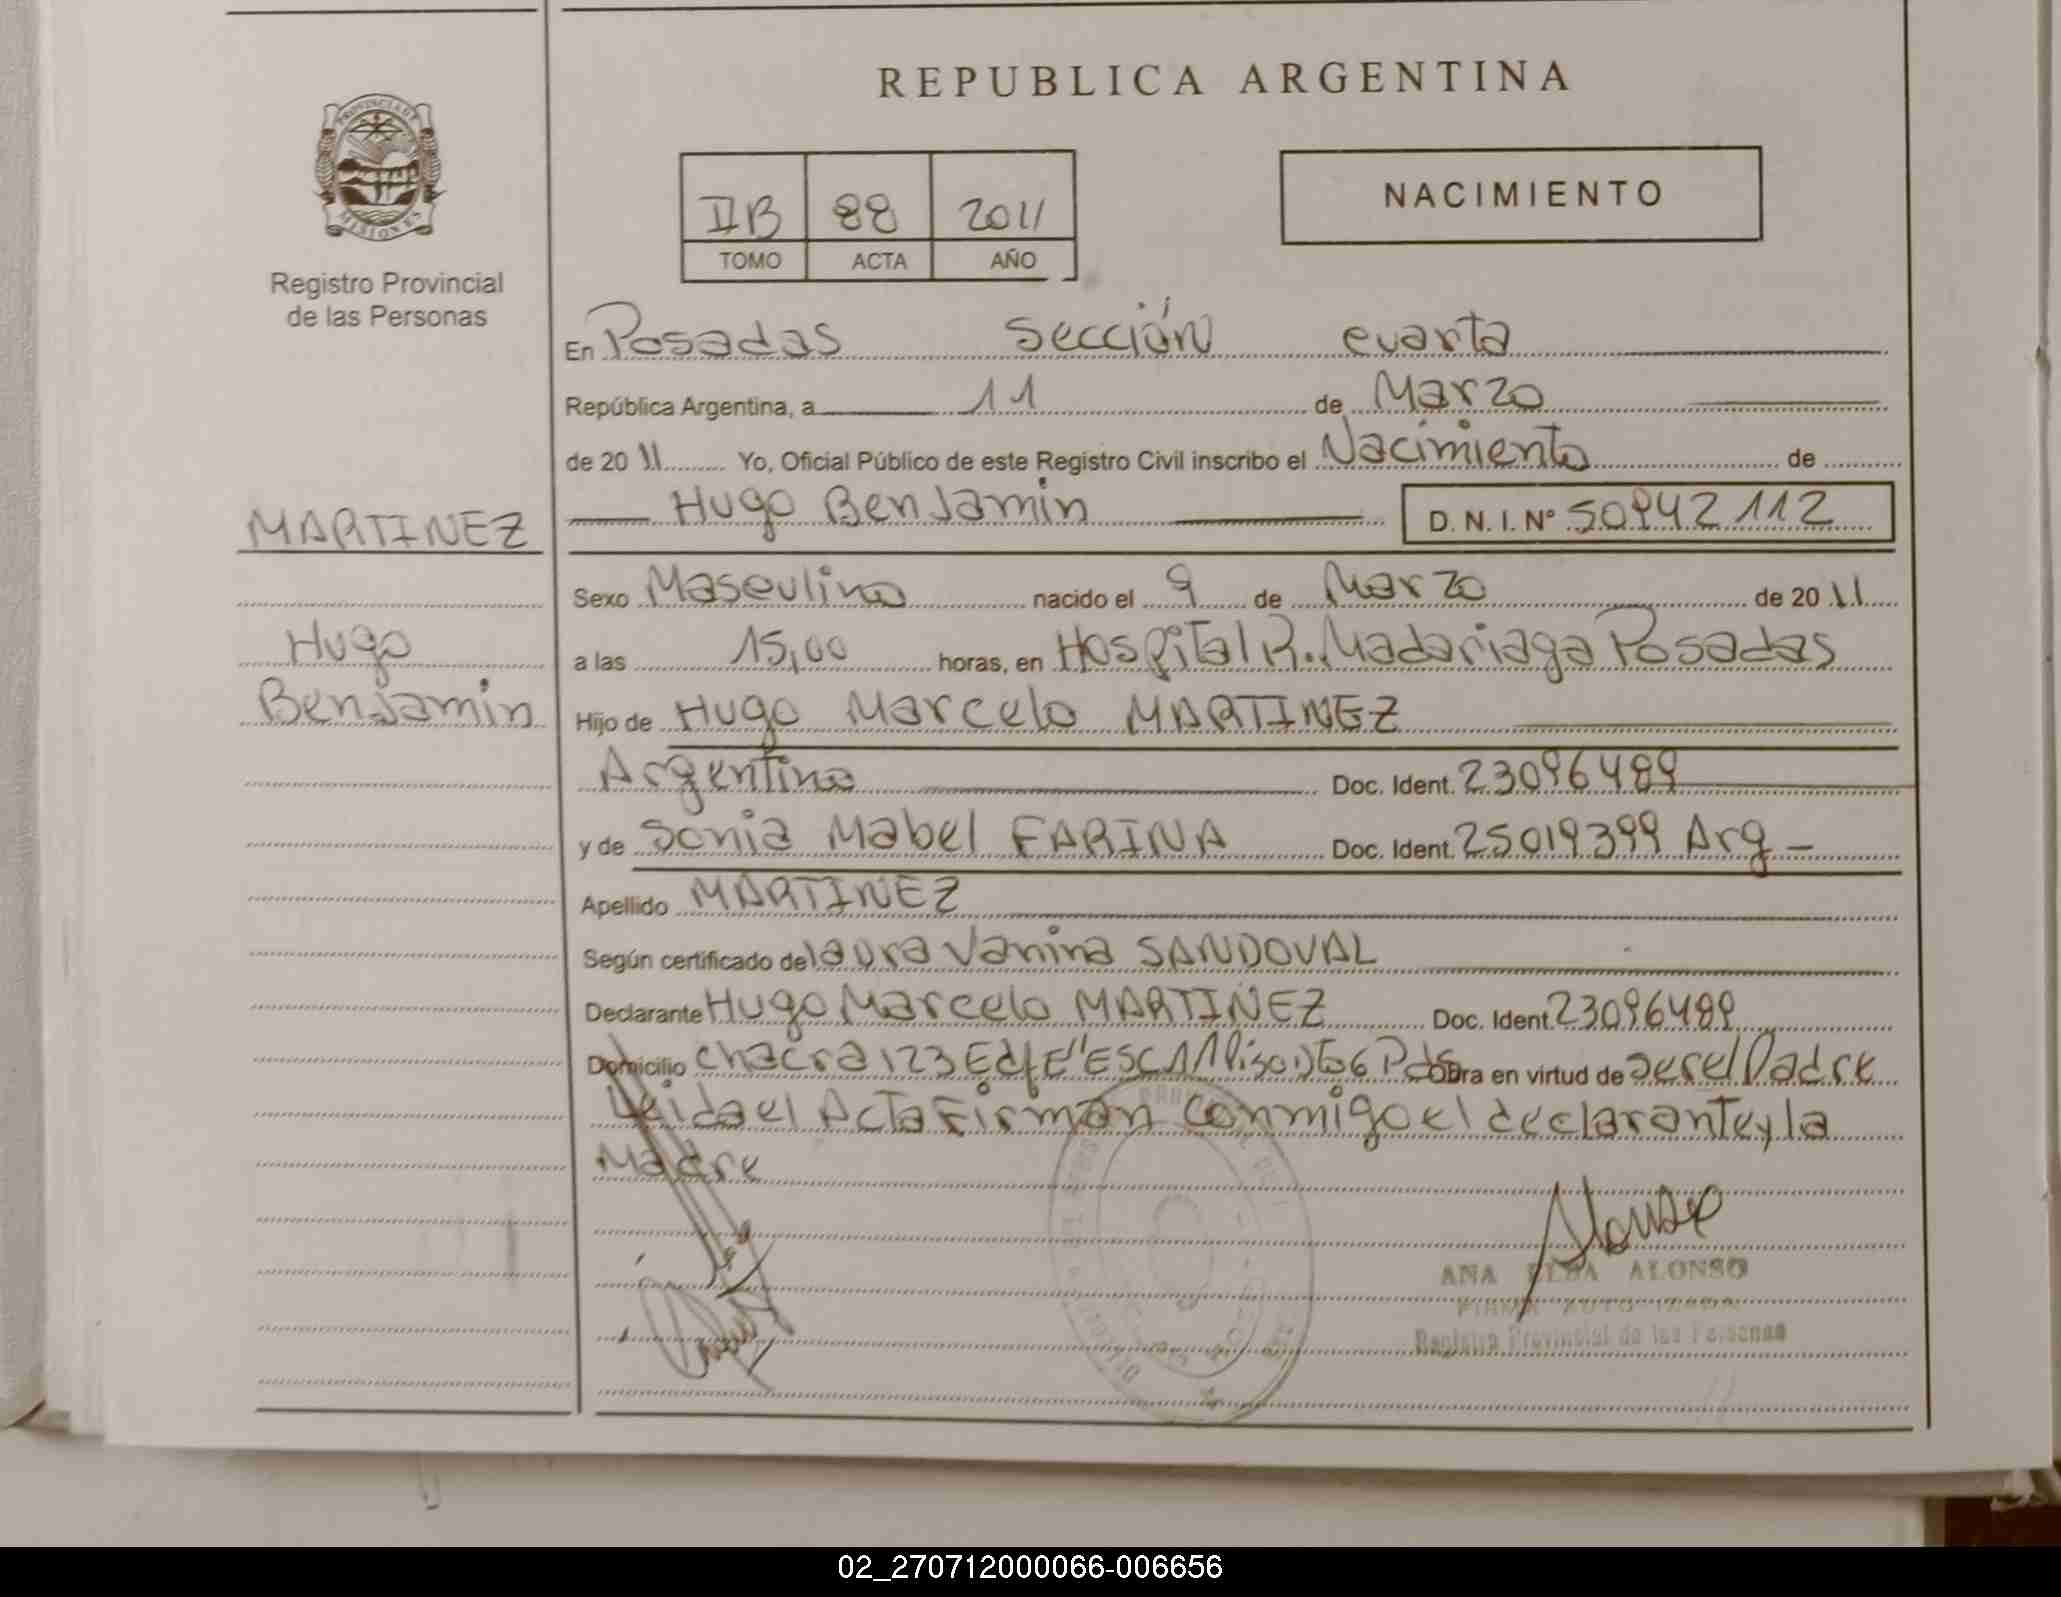 REPUBLICA ARGENTINA
PROVINCIA DE MISIONES
Registro Provincial
de las Personas
IIB 88 2011
TOMO ACTA AÑO
NACIMIENTO
En Posadas Sección cuarta
República Argentina, a 11 de Marzo
de 2011 Yo, Oficial Público de este Registro Civil inscribo el Nacimiento de
Hugo Benjamin D. N. I. Nº 50942112
MARTINEZ
Hugo
Benjamin
Sexo Masculino nacido el 9 de Marzo de 2011
a las 15,00 horas, en Hospital R. Madariaga Posadas
Hijo de Hugo Marcelo MARTINEZ
Argentino Doc. Ident. 23096489
y de Sonia Mabel FARINA Doc. Ident. 25019399 Arg -
Apellido MARTINEZ
Según certificado de laura Vanina SANDOVAL
Declarante Hugo Marcelo MARTINEZ Doc. Ident. 23096489
Domicilio chacra 123 Edf E" ESC 1 1 Piso Dto 6 Pdas Obra en virtud de ser el Padre
Leida el Acta Firman conmigo el declarante y la
Madre
Alonso
ANA ELBA ALONSO
FIRMA AUTORIZADA
Registro Provincial de las Personas
02_270712000066-006656